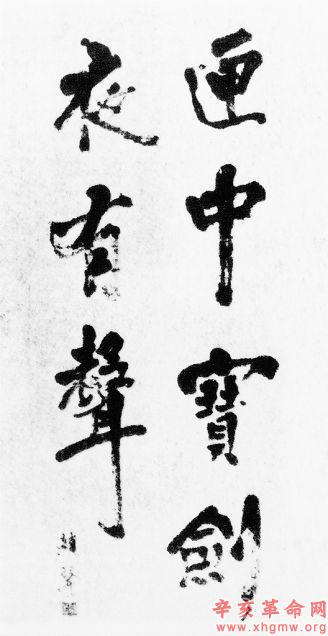 匣中寶劍
夜有聲
辛亥革命网
www.xhgmw.org